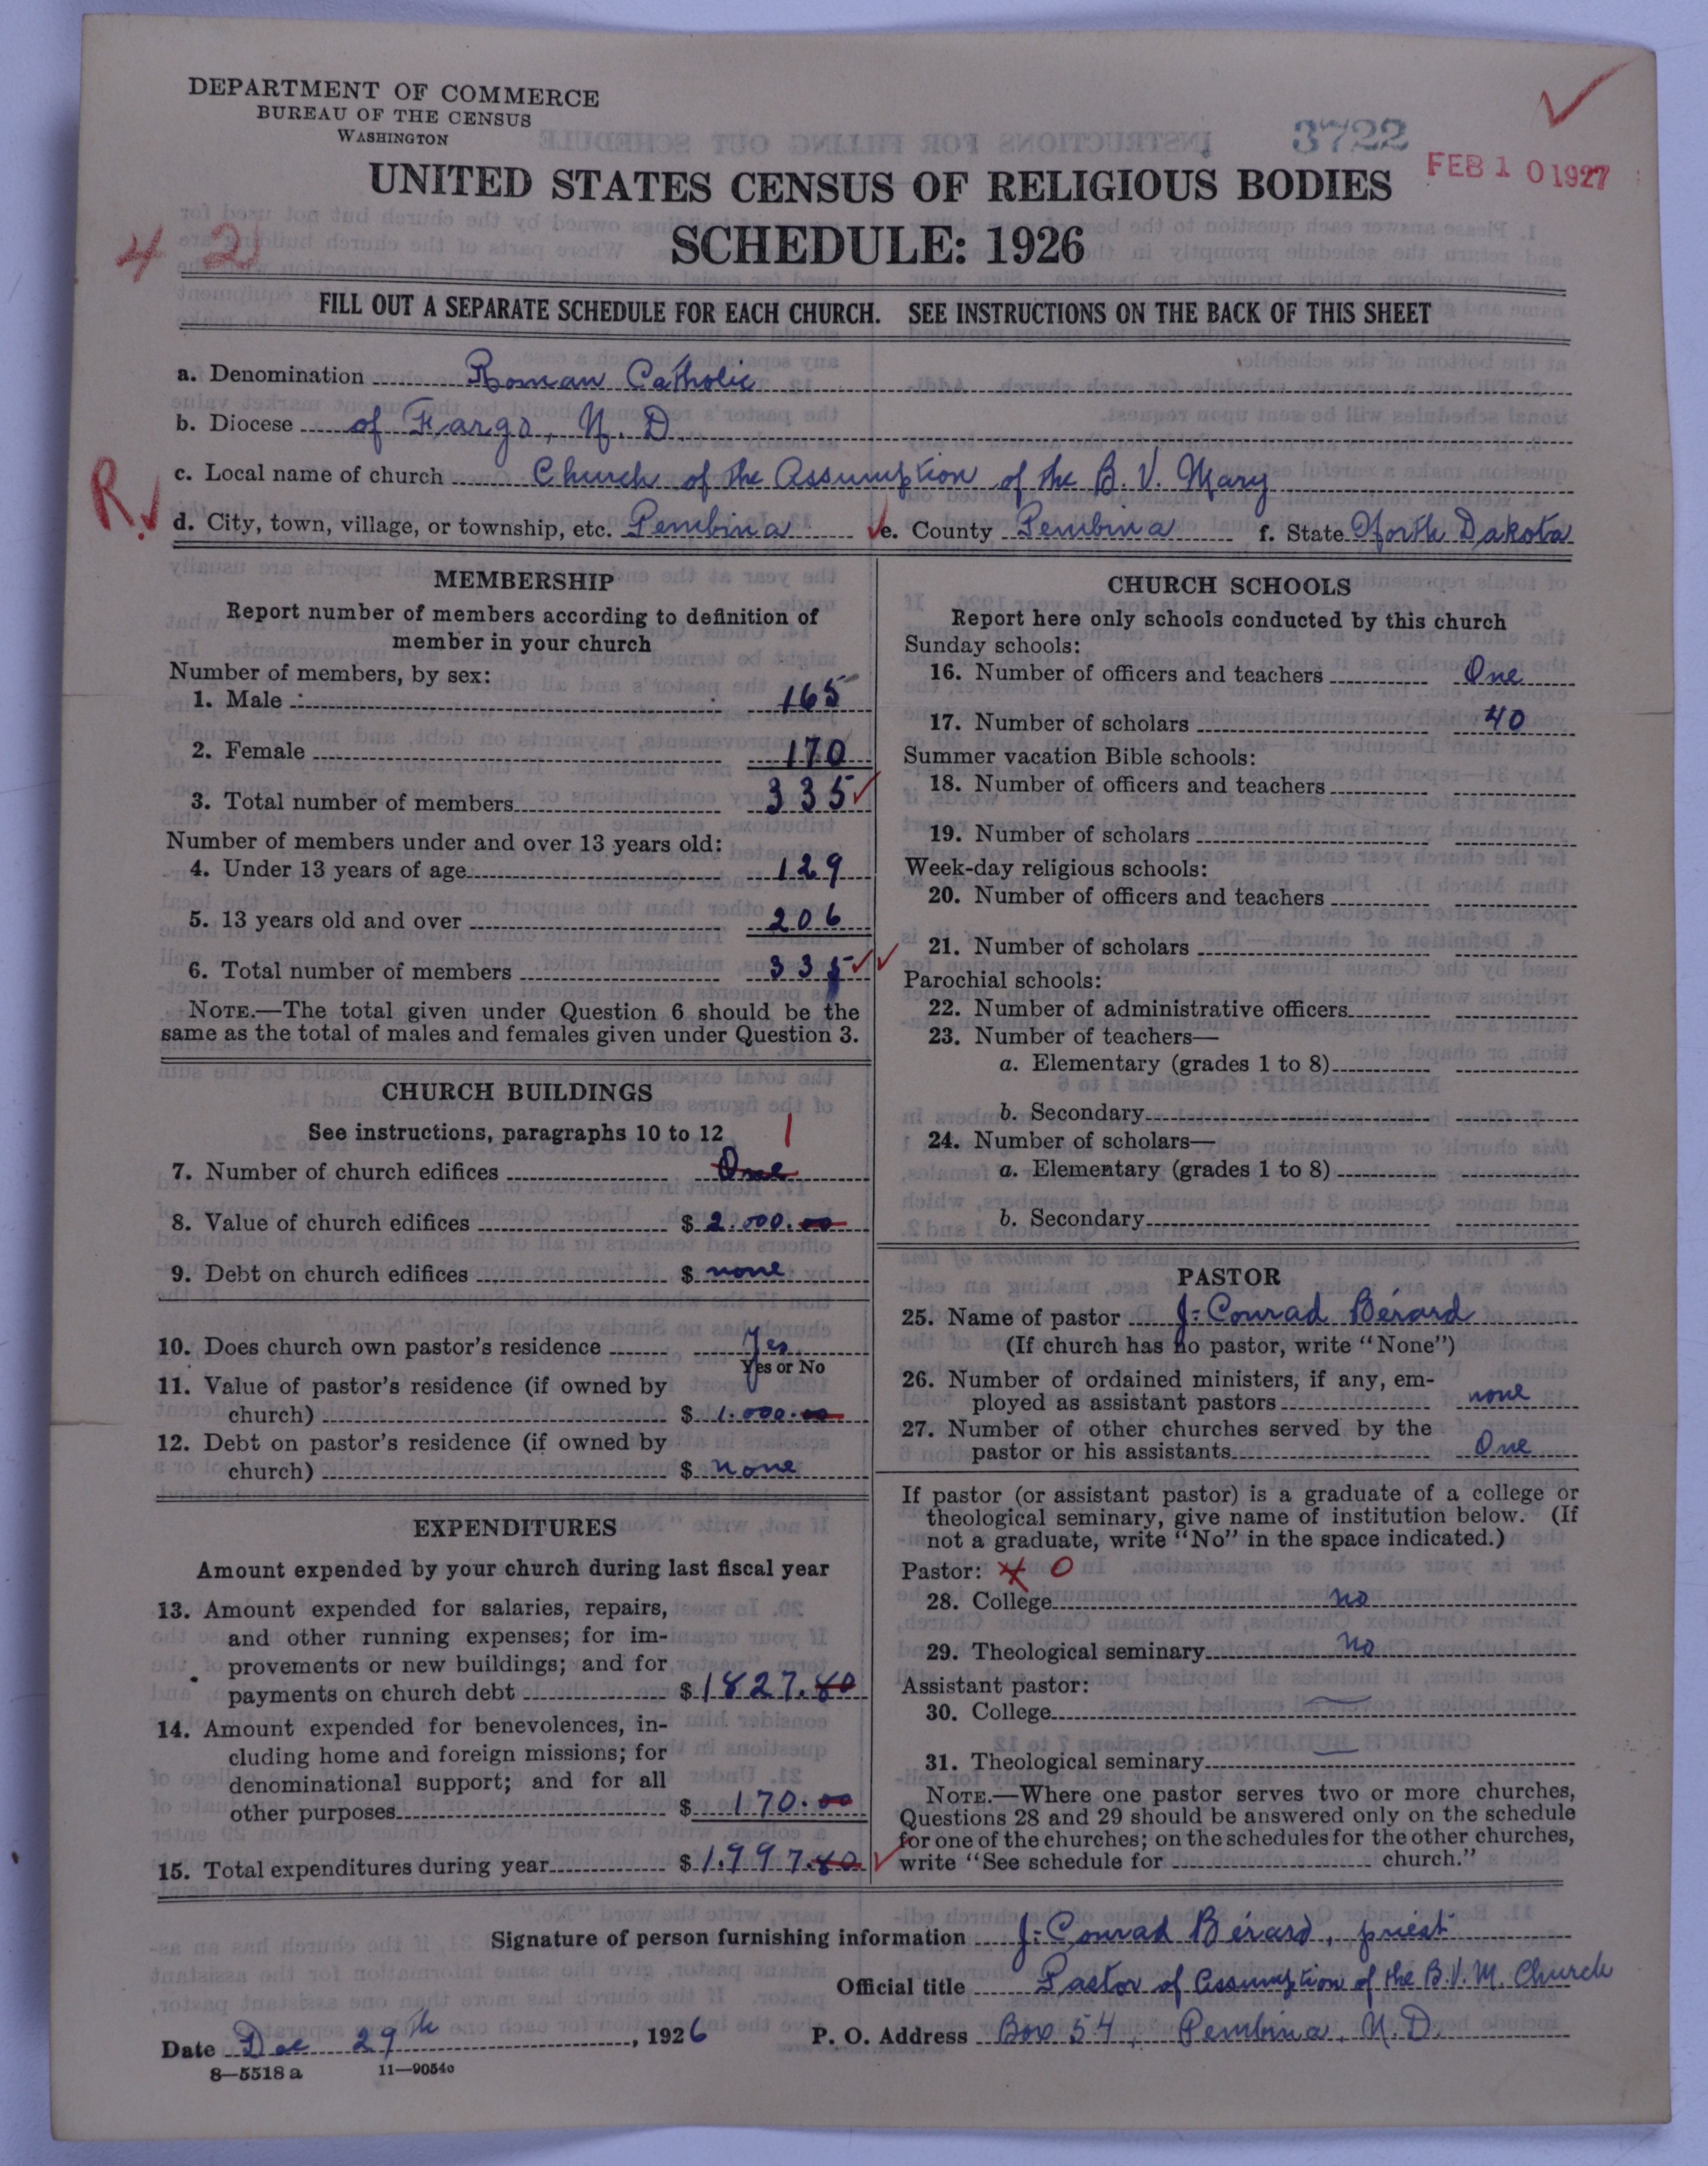 DEPARTMENT OF COMMERCE
BUREAU OF THE CENSUS
WASHINGTON
3722
FEB 10 1927
UNITED STATES CENSUS OF RELIGIOUS BODIES
SCHEDULE: 1926
4 2
FILL OUT A SEPARATE SCHEDULE FOR EACH CHURCH. SEE INSTRUCTIONS ON THE BACK OF THIS SHEET
a. Denomination Roman Catholic
b. Diocese of Fargo, N. D.
c. Local name of church Church of the Assumption of the B. V. Mary
R.
d. City, town, village, or township, etc. Pembina e. County Pembina f. State North Dakota
MEMBERSHIP
Report number of members according to definition of
member in your church
Number of members, by sex:
1. Male 165
2. Female 170
3. Total number of members 335
Number of members under and over 13 years old:
4. Under 13 years of age 129
5. 13 years old and over 206
6. Total number of members 335
NOTE.—The total given under Question 6 should be the
same as the total of males and females given under Question 3.
CHURCH BUILDINGS
See instructions, paragraphs 10 to 12 1
7. Number of church edifices One
8. Value of church edifices $ 2.000.00
9. Debt on church edifices $ none
10. Does church own pastor's residence Yes
Yes or No
11. Value of pastor's residence (if owned by
church) $ 1.000.00
12. Debt on pastor's residence (if owned by
church) $ none
EXPENDITURES
Amount expended by your church during last fiscal year
13. Amount expended for salaries, repairs,
and other running expenses; for im-
provements or new buildings; and for
payments on church debt $ 1827.80
14. Amount expended for benevolences, in-
cluding home and foreign missions; for
denominational support; and for all
other purposes $ 170.00
15. Total expenditures during year $ 1.997.80
CHURCH SCHOOLS
Report here only schools conducted by this church
Sunday schools:
16. Number of officers and teachers One
17. Number of scholars 40
Summer vacation Bible schools:
18. Number of officers and teachers
19. Number of scholars
Week-day religious schools:
20. Number of officers and teachers
21. Number of scholars
Parochial schools:
22. Number of administrative officers
23. Number of teachers—
a. Elementary (grades 1 to 8)
b. Secondary
24. Number of scholars—
a. Elementary (grades 1 to 8)
b. Secondary
PASTOR
25. Name of pastor J: Conrad Bérard
(If church has no pastor, write "None")
26. Number of ordained ministers, if any, em-
ployed as assistant pastors none
27. Number of other churches served by the
pastor or his assistants One
If pastor (or assistant pastor) is a graduate of a college or
theological seminary, give name of institution below. (If
not a graduate, write "No" in the space indicated.)
Pastor: 0
28. College no
29. Theological seminary No
Assistant pastor:
30. College
31. Theological seminary
NOTE.—Where one pastor serves two or more churches,
Questions 28 and 29 should be answered only on the schedule
for one of the churches; on the schedules for the other churches,
write "See schedule for church."
Signature of person furnishing information J: Conrad Bérard, priest
Official title Pastor of Assumption of the B.V.M. Church
Date Dec 29th, 1926 P. O. Address Box 54, Pembina, N. D.
8—5518 a 11—9054c